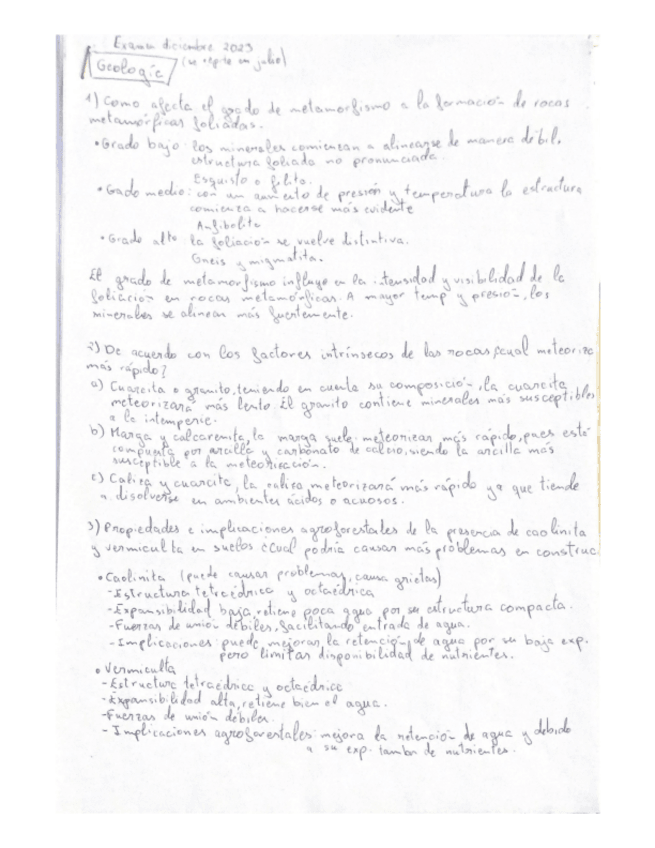 Examen diciembre 2023
Geología (se repite en julio)
1) Como afecta el grado de metamorfismo a la formación de rocas
metamórficas foliadas.
• Grado bajo: los minerales comienzan a alinearse de manera débil,
estructura foliada no pronunciada.
Esquisto o filita.
• Gado medio: con un aumento de presión y temperatura la estructura
comienza a hacerse más evidente
Anfibolita
• Grado alto la foliación se vuelve distintiva.
Gneis y migmatita.
El grado de metamorfismo influye en la intensidad y visibilidad de la
foliación en rocas metamórficas. A mayor temp y presión, los
minerales se alinean más fuertemente.
2) De acuerdo con los factores intrínsecos de las rocas ¿cual meteoriza
más rápido?
a) Cuarcita o granito, teniendo en cuenta su composición, la cuarcita
meteorizará más lento. El granito contiene minerales más susceptibles
a la intemperie.
b) Marga y calcarenita, la marga suele meteorizar más rápido, pues está
compuesta por arcilla y carbonato de calcio, siendo la arcilla más
susceptible a la meteorización.
c) Caliza y cuarcita, la caliza meteorizará más rápido ya que tiende
a disolverse en ambientes ácidos o acuosos.
3) Propiedades e implicaciones agroforestales de la presencia de caolinita
y vermiculita en suelos ¿Cual podría causar más problemas en construc
• Caolinita (puede causar problemas, causa grietas)
- Estructura tetraédrica y octaédrica
- Expansibilidad baja, retiene poca agua por su estructura compacta.
- Fuerzas de unión débiles, facilitando entrada de agua.
- Implicaciones: puede mejorar la retención de agua por su baja exp.
pero limitar disponibilidad de nutrientes.
• Vermiculta
- Estructura tetraédrica y octaédrica
- Expansibilidad alta, retiene bien el agua.
- Fuerzas de unión débiles.
- Implicaciones agroforestales: mejora la retención de agua y debido
a su exp. tambn de nutrientes.